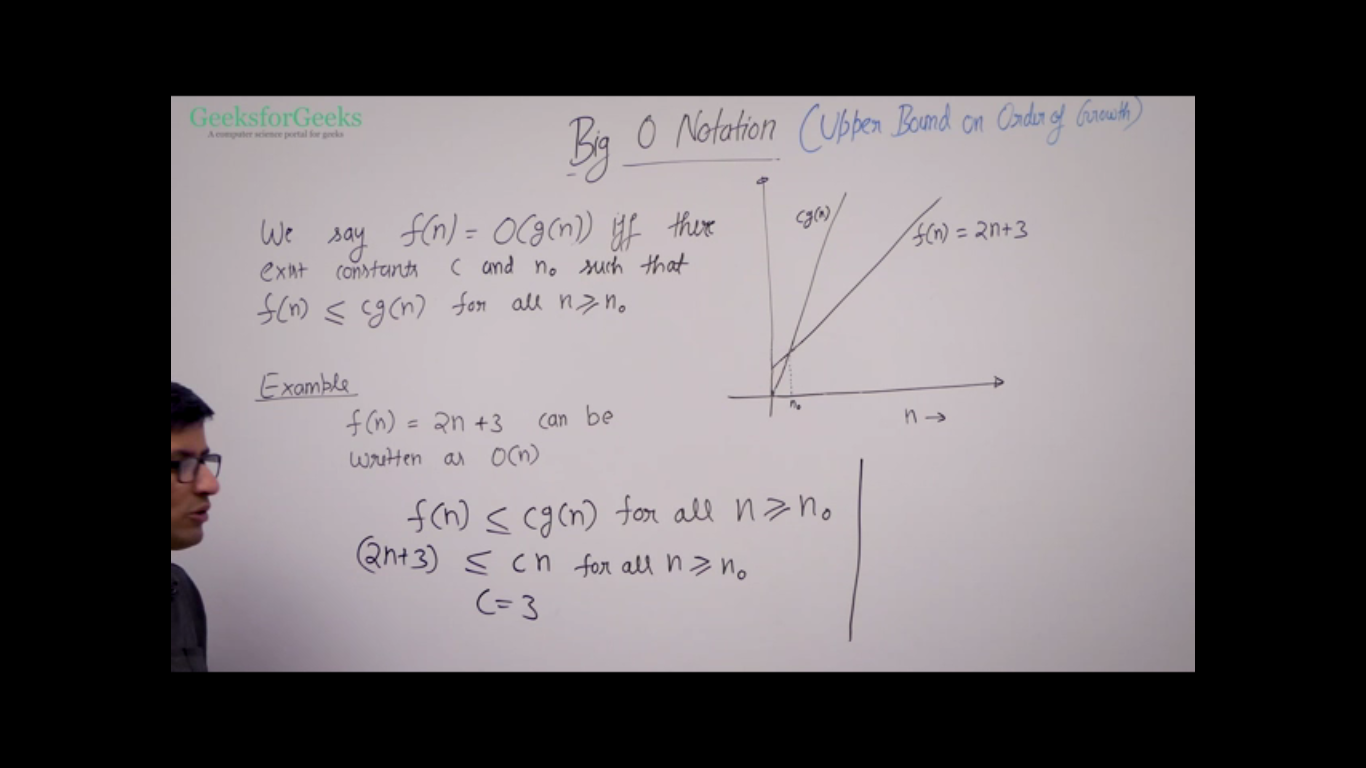 GeeksforGeeks
A computer science portal for geeks
Big O Notation (Upper Bound on Order of Growth)
We say f(n) = O(g(n)) iff there
exist constants C and n₀ such that
f(n) ≤ cg(n) for all n ≥ n₀
cg(n)
f(n) = 2n+3
n₀
n →
Example
f(n) = 2n +3 can be
written as O(n)
f(n) ≤ cg(n) for all n ≥ n₀
(2n+3) ≤ cn for all n ≥ n₀
C = 3